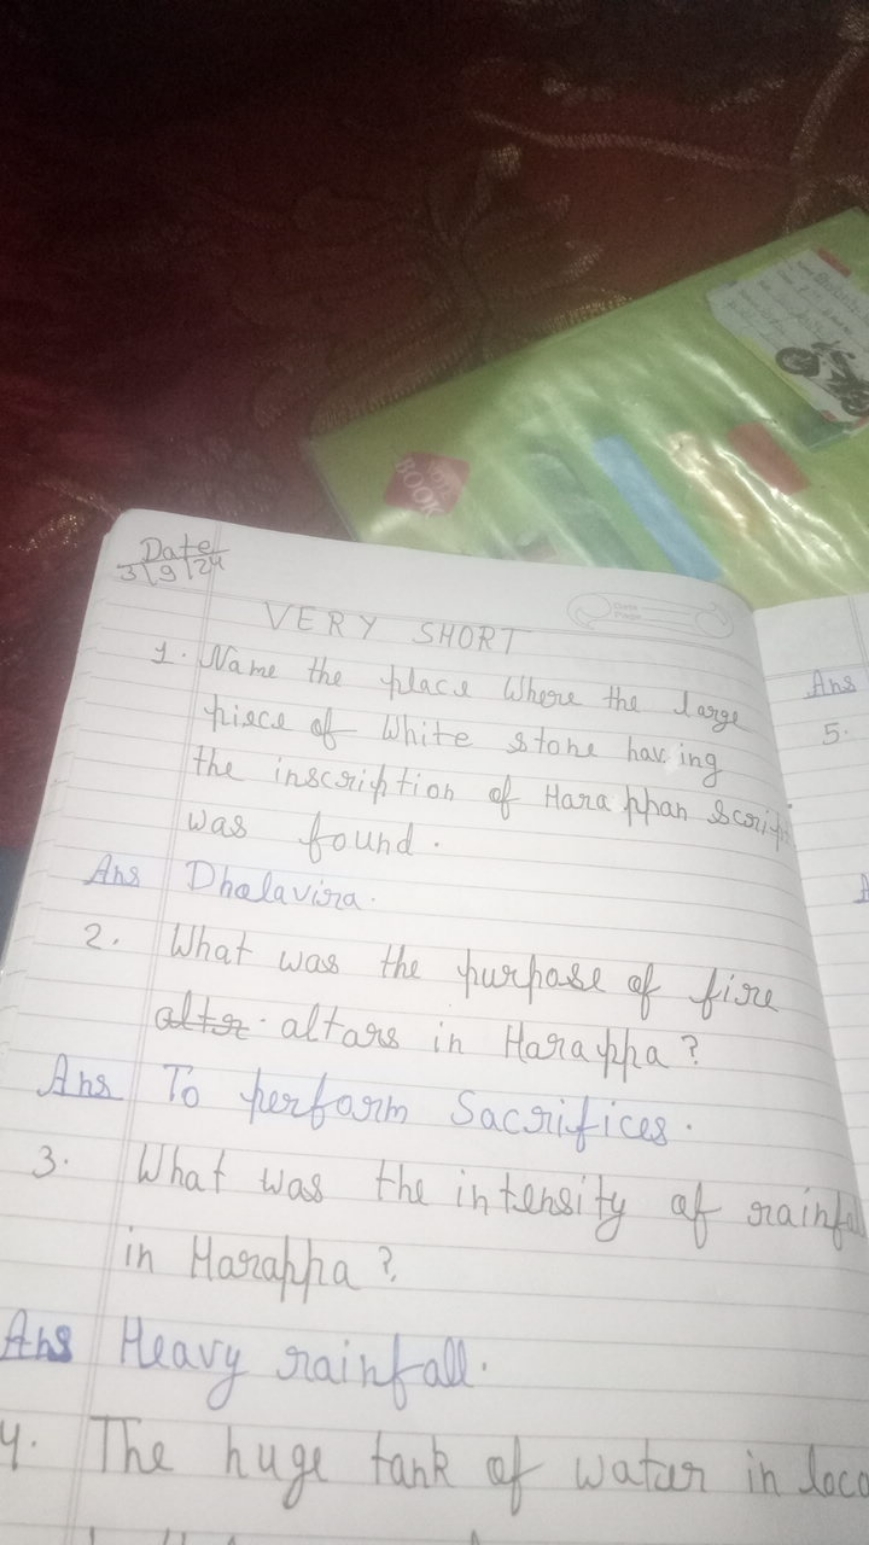 Date
3\9\24
VERY SHORT
1. Name the place Where the large
piece of White stone having
the inscription of Harappan Script
was found.
Ans Dholavira.
2. What was the purpose of fire
altr. altars in Harappa?
Ans To perform Sacrifices.
3. What was the intensity of rainfall
in Harappa?
Ans Heavy rainfall.
4. The huge tank of water in
Ans
5.
BOOK